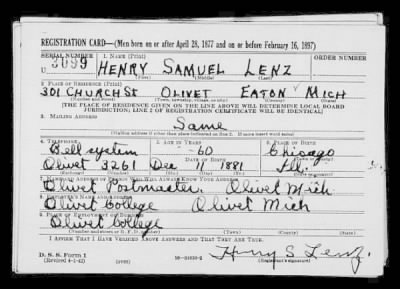 REGISTRATION CARD—(Men born on or after April 28, 1877 and on or before February 16, 1897)
SERIAL NUMBER 1. NAME (Print) ORDER NUMBER
U 3099 HENRY SAMUEL LENZ
(First) (Middle) (Last)
2. PLACE OF RESIDENCE (Print)
301 CHURCH ST OLIVET EATON MICH
(Number and street) (Town, township, village, or city) (County) (State)
[THE PLACE OF RESIDENCE GIVEN ON THE LINE ABOVE WILL DETERMINE LOCAL BOARD
JURISDICTION; LINE 2 OF REGISTRATION CERTIFICATE WILL BE IDENTICAL]
3. MAILING ADDRESS
Same
(Mailing address if other than place indicated on line 2. If same insert word same)
4. TELEPHONE 5. AGE IN YEARS 6. PLACE OF BIRTH
Bell system 60 Chicago
Olivet 3261 Dec 11 1881 Ill.
7. NAME AND ADDRESS OF PERSON WHO WILL ALWAYS KNOW YOUR ADDRESS
Olivet Postmaster. Olivet Mich
8. EMPLOYER'S NAME AND ADDRESS
Olivet College Olivet Mich
9. PLACE OF EMPLOYMENT OR BUSINESS
Olivet College
I AFFIRM THAT I HAVE VERIFIED ABOVE ANSWERS AND THAT THEY ARE TRUE.
D. S. S. Form 1
(Revised 4-1-42) Henry S Lenz.
(Registrant's signature)